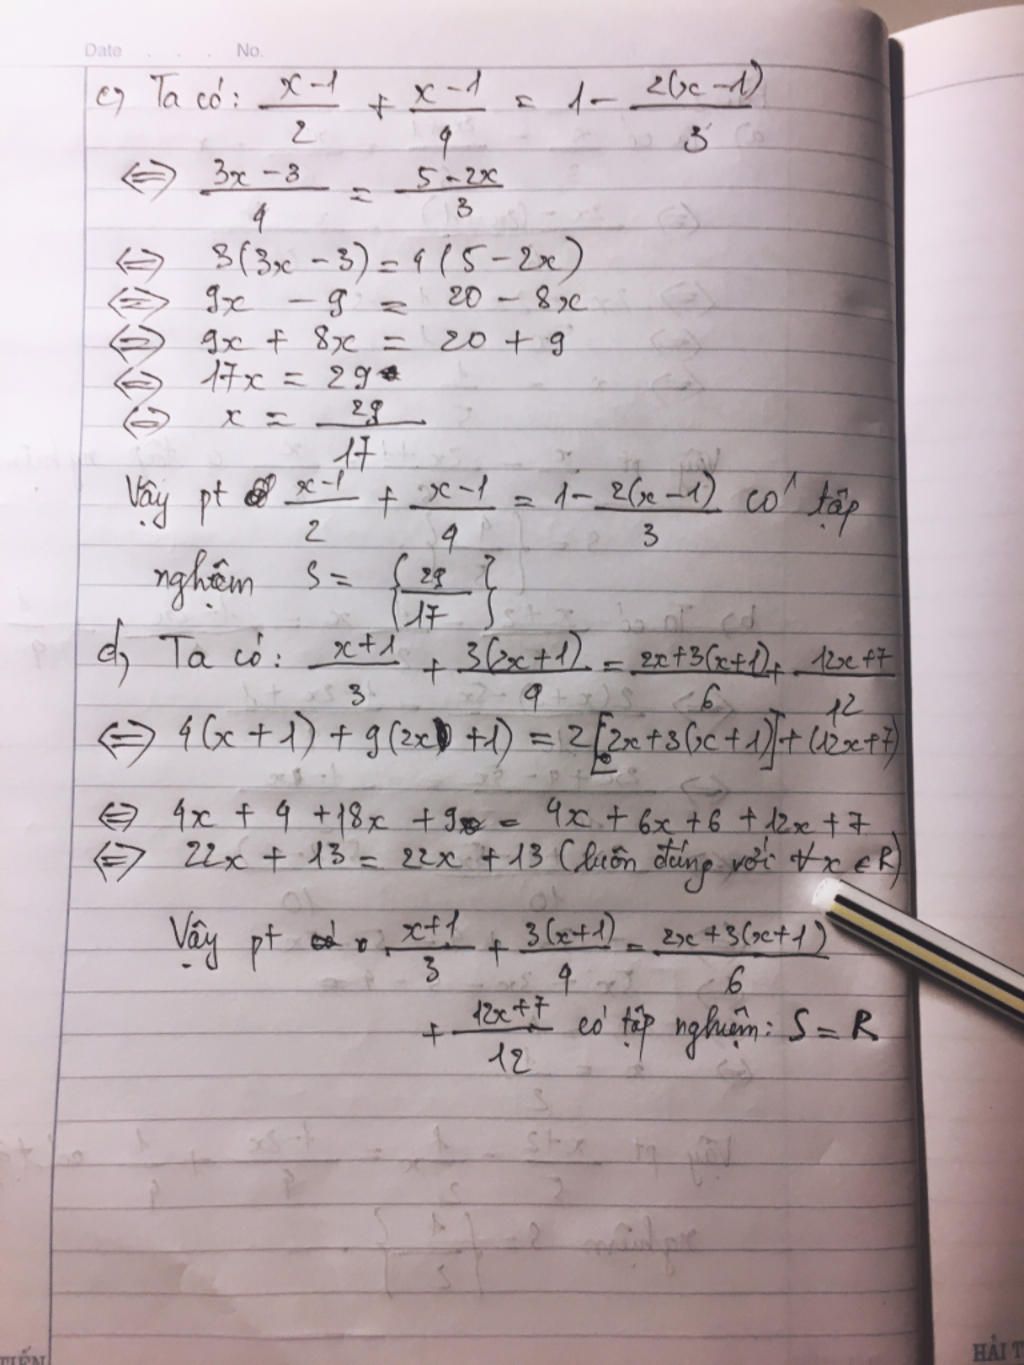 Date . . . No.
c, Ta có: \frac{x-1}{2} + \frac{x-1}{4} = 1 - \frac{2(x-1)}{3}
⇔ \frac{3x-3}{4} = \frac{5-2x}{3}
⇔ 3(3x-3) = 4(5-2x)
⇔ 9x - 9 = 20 - 8x
⇔ 9x + 8x = 20 + 9
⇔ 17x = 29
⇔ x = \frac{29}{17}
Vậy pt \frac{x-1}{2} + \frac{x-1}{4} = 1 - \frac{2(x-1)}{3} có tập
nghiệm S = {\frac{29}{17}}
d, Ta có: \frac{x+1}{3} + \frac{3(2x+1)}{4} = \frac{2x+3(x+1)}{6} + \frac{12x+7}{12}
⇔ 4(x+1) + 9(2x+1) = 2[2x+3(x+1)] + (12x+7)
⇔ 4x + 4 + 18x + 9 = 4x + 6x + 6 + 12x + 7
⇔ 22x + 13 = 22x + 13 (luôn đúng với ∀x ∈ R)
Vậy pt \frac{x+1}{3} + \frac{3(x+1)}{4} = \frac{2x+3(x+1)}{6}
+ \frac{12x+7}{12} có tập nghiệm: S = R
TIẾN
HẢI T